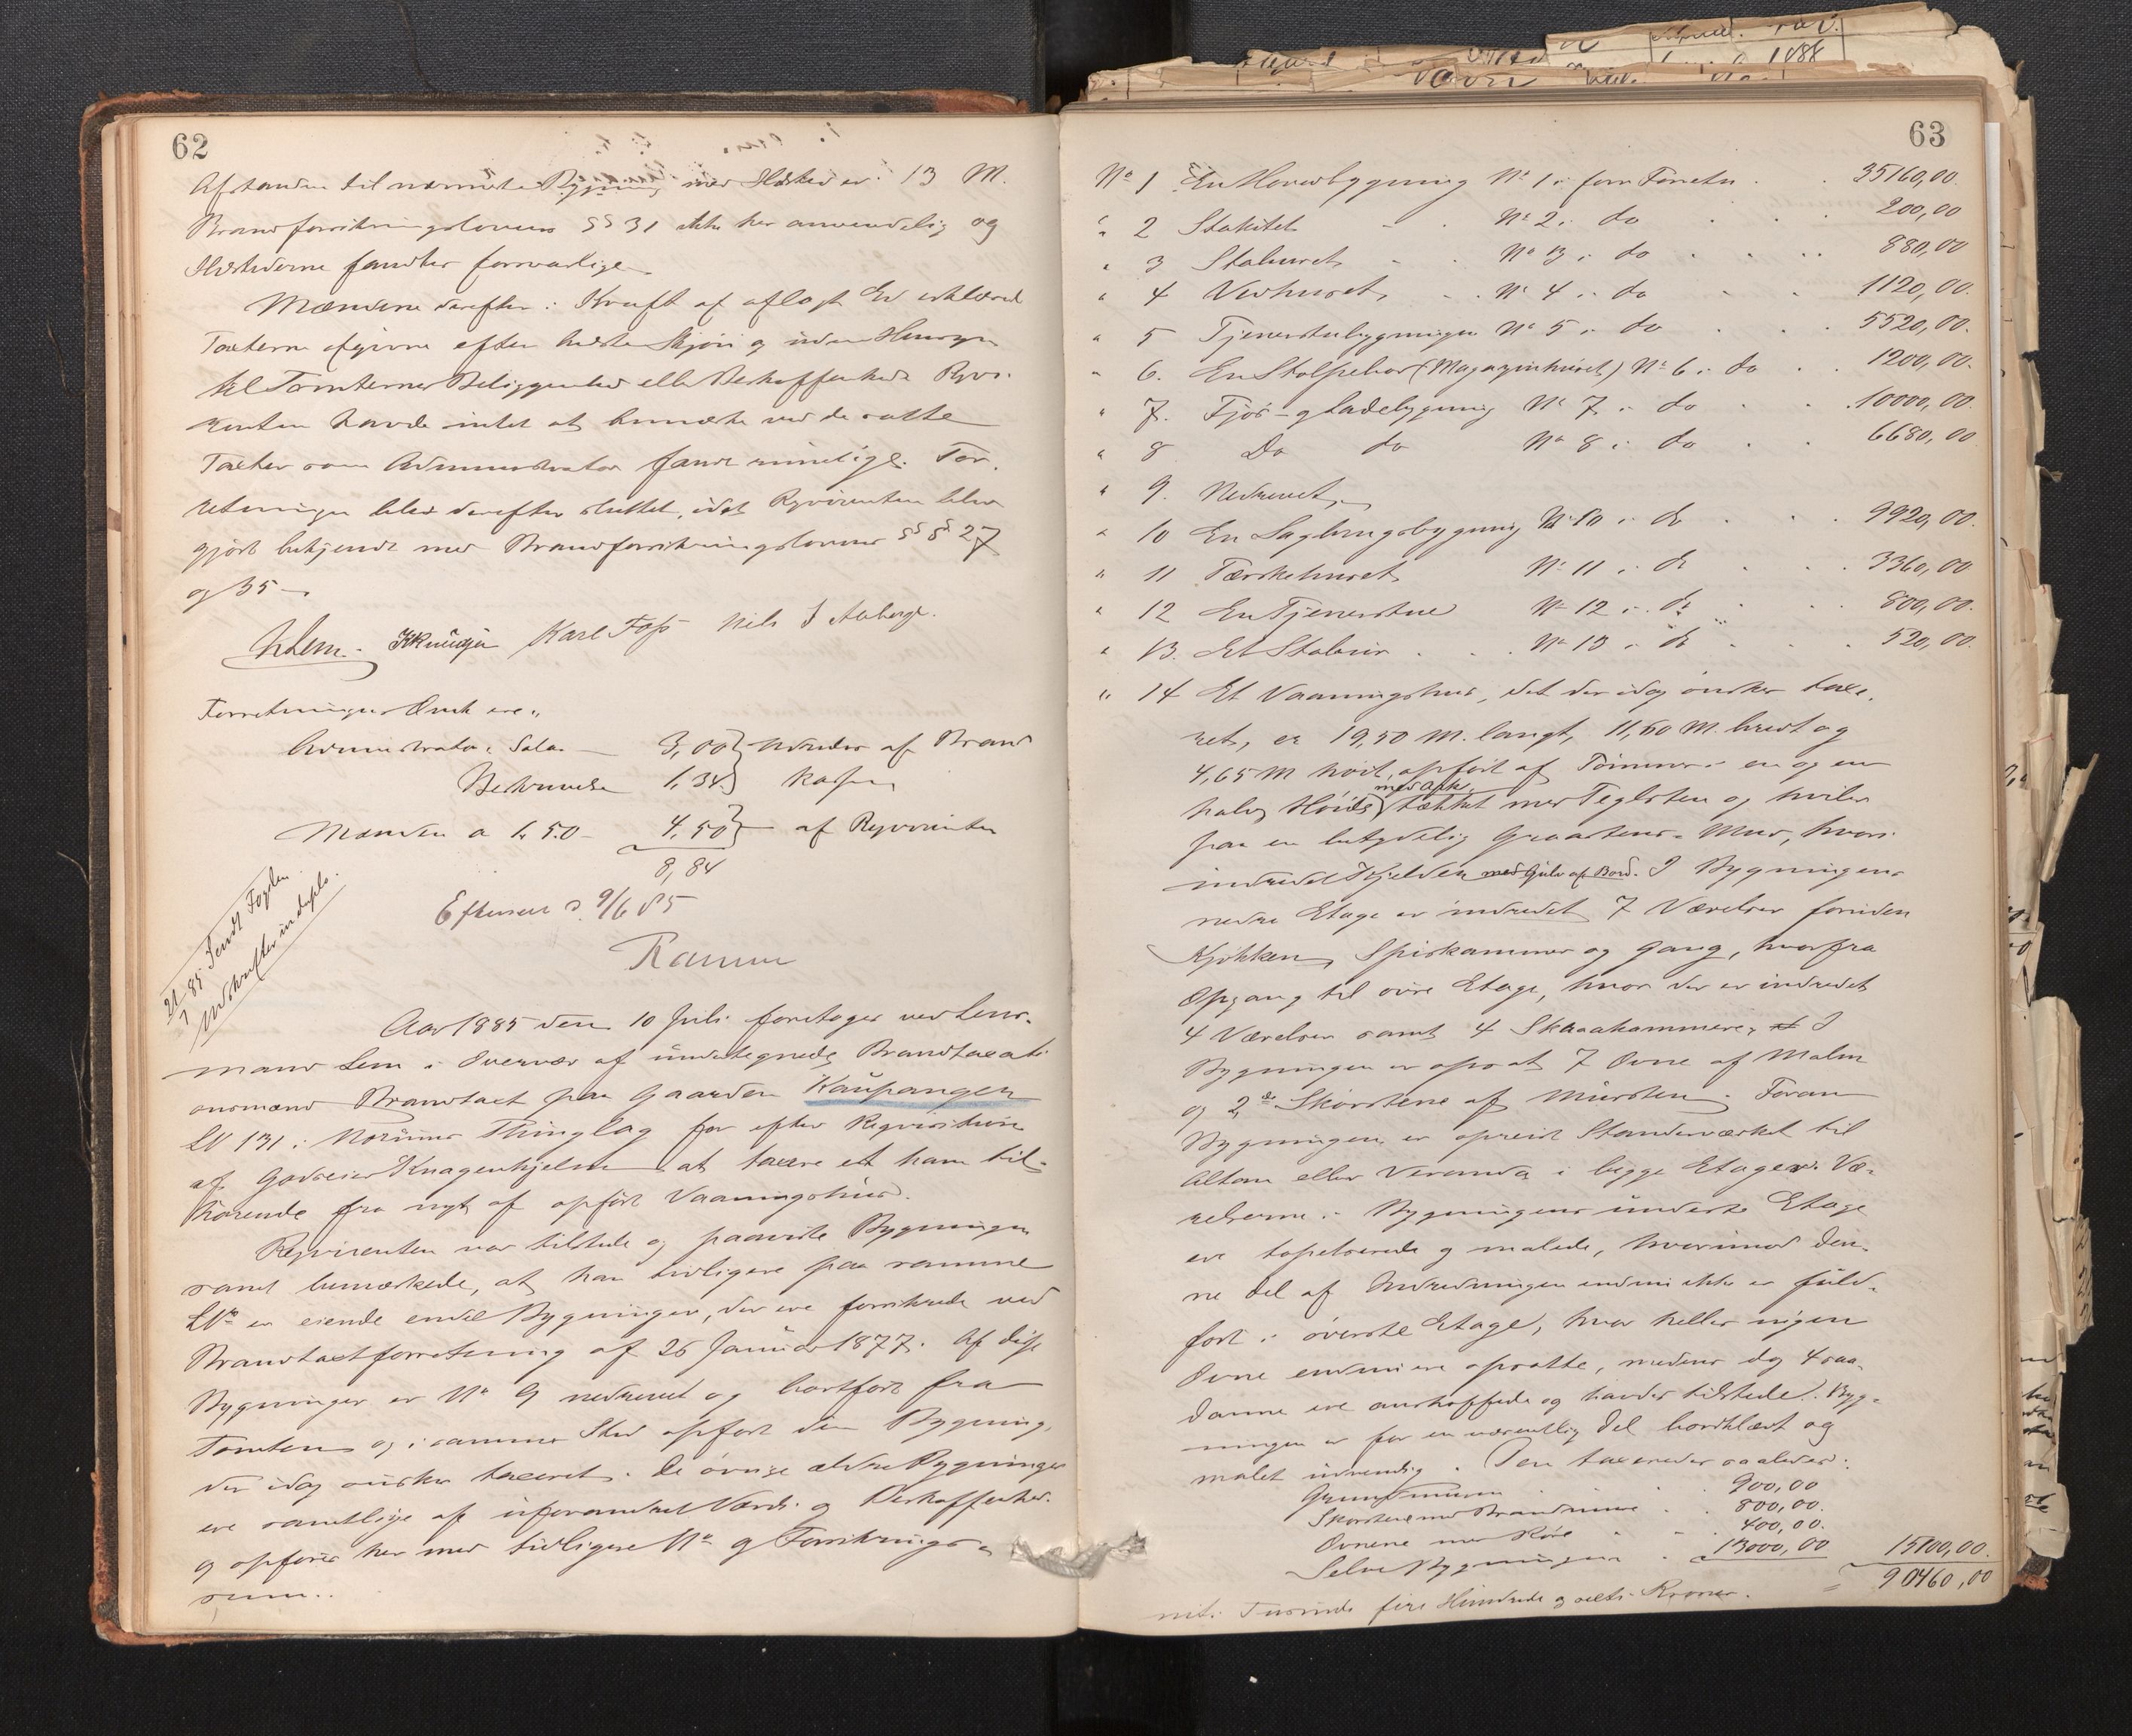 62
Afstanden til nærmeste Bygning med Ildsted er 13 M.
Brandforsikringslovens §§ 31 ikke her anvendelig og
Ildstederne fandtes forsvarlige.
Mændene derefter i Kraft af aflagt Ed erklæred
Taxterne afgivne efter bedste Skjøn og uden Hensyn
til Tomternes Beliggenhed eller Beskaffenhed. Rqvi-
renten havde intet at bemærke ved de satte
Taxter som Administrator fandt rimelige. For-
retningen blev derefter sluttet, idet Rqvirenten blev
gjort bekjendt med Brandforsikringslovens §§ 27
og 35
Lem. Karl Foss Nils J
Forretningen Omk ere:
Administrators Salar 3,00 udredes af Brand
Beskrivelse 1,34 kassen
Mændene a 1,50 4,50 af Rqvirenten
8,84
Efterseet d. 9/6 85
Ramm
21/7 85 Sendt Fogden
Udskrifter in duplo.
Aar 1885 den 10 Juli foretoges ved Lens-
mand Lem i Overvær af undertegnede Brandtaxati-
onsmænd Brandtaxt paa Gaarden Kaupangen
LN 131 i Norums Thinglag for efter Reqvisition
af Godseier Knagenhjelm at taxere et ham til-
hørende fra nyt af opført Vaaningshus.
Reqvirenten var tilstede og paaviste Bygningen
samt bemærkede, at han tidligere paa samme
LNo er eiende endel Bygninger, der ere forsikrede ved
Brandtaxtforretning af 26 Januar 1877. Af disse
Bygninger er No 9 nedrevet og bortført fra
Tomten og i samme Sted opført den Bygning,
der idag ønskes taxeret. De øvrige ældre Bygninger
ere samtlige af uforandret Værdi og Beskaffenhed
og opføres her med tidligere No og Forsikrings-
sum..
63
No 1 En Hovedbygning No 1 i forr Forretn. 35160,00.
" 2 Stakitet No 2 i do 200,00
" 3 Staburet No 3 i do 880,00
" 4 Vedhuset No 4 i do 1120,00.
" 5 Tjenerstubygningen No 5 i do 5520,00.
" 6. En Stolpebod (Magazinhuset) No 6 i do 1200,00.
" 7. Fjøs- og Ladebygning No 7 i do 10000,00.
" 8 Do do No 8 i do 6680,00
" 9. Nedrevet,
" 10 En Sagbrugsbygning No 10 i do 9920,00.
" 11 Tærskehuset No 11 i do 3360,00
" 12 En Tjenerstue No 12 i do 800,00.
" 13. Et Stabur No 13 i do 520,00.
" 14 Et Vaaningshus, det der idag ønskes taxe-
ret, er 19,50 M. langt, 11,60 M. bredt og
4,65 M høit, opført af Tømmer i en og en
med Ark,
halv Høide tækket med Teglsten og hviler
paa en betydelig Graastens-Mur, hvori
indredet Kjelder med Gulv af Bord. I Bygningens
nedre Etage er indredet 7 Værelser foruden
Kjøkken, Spiskammer og Gang, hvorfra
Opgang til øvre Etage, hvor der er indredet
4 Værelser samt 4 Skraakammere, I
Bygningen er opsat 7 Ovne af Malm
og 2de Skorstene af Mursten. Foran
Bygningen er opreist Standerværket til
Altan eller Veranda i begge Etager. Væ-
relserne i Bygningens underste Etage
ere tapetserede og malede, hvorimod den-
ne Del af Indredningen endnu ikke er fuld-
ført i øverste Etage, hvor heller ingen
Ovne endnu ere opsatte, medens dog 4 saa-
danne ere anskaffede og havdes tilstede. Byg-
ningen er for en væsentlig Del bordklædt og
malet udvendig. Den taxeredes saaledes:
Grundmuren 900,00
Skorstene med Brandmure 800,00.
Ovnene med Rør 400,00.
Selve Bygningen 13000,00 15100,00.
= 90460,00
nit. Tusinde fire Hundrede og seksti Kroner.